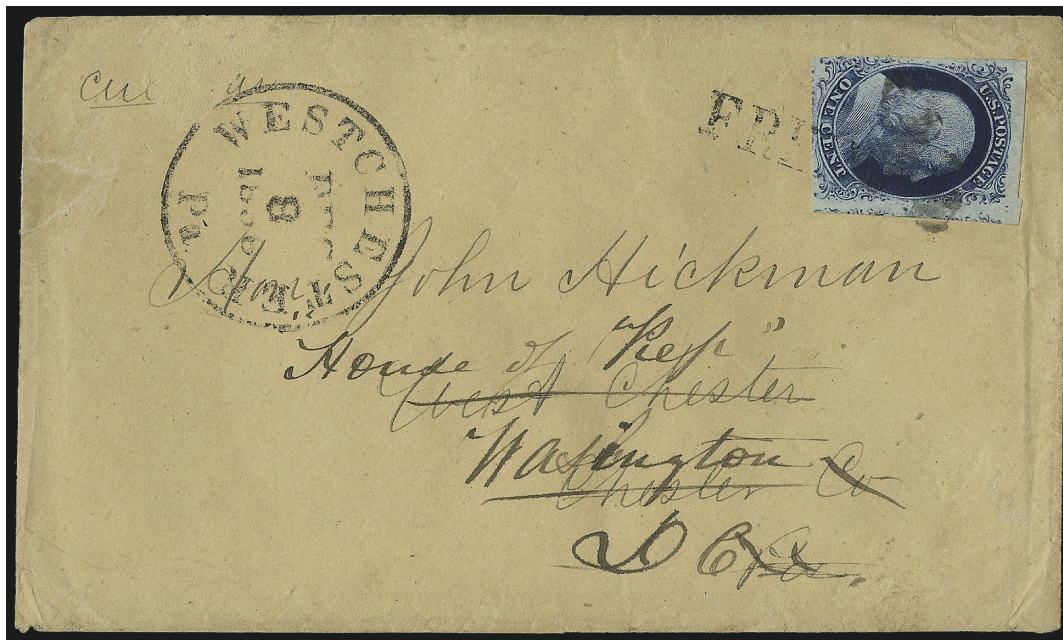 WESTCHESTER Pa
8
FRE
U.S. POSTAGE
ONE CENT
Hon. John Hickman
House of "Rep"
West Chester
Washington
Chester Co
D C
Pa.